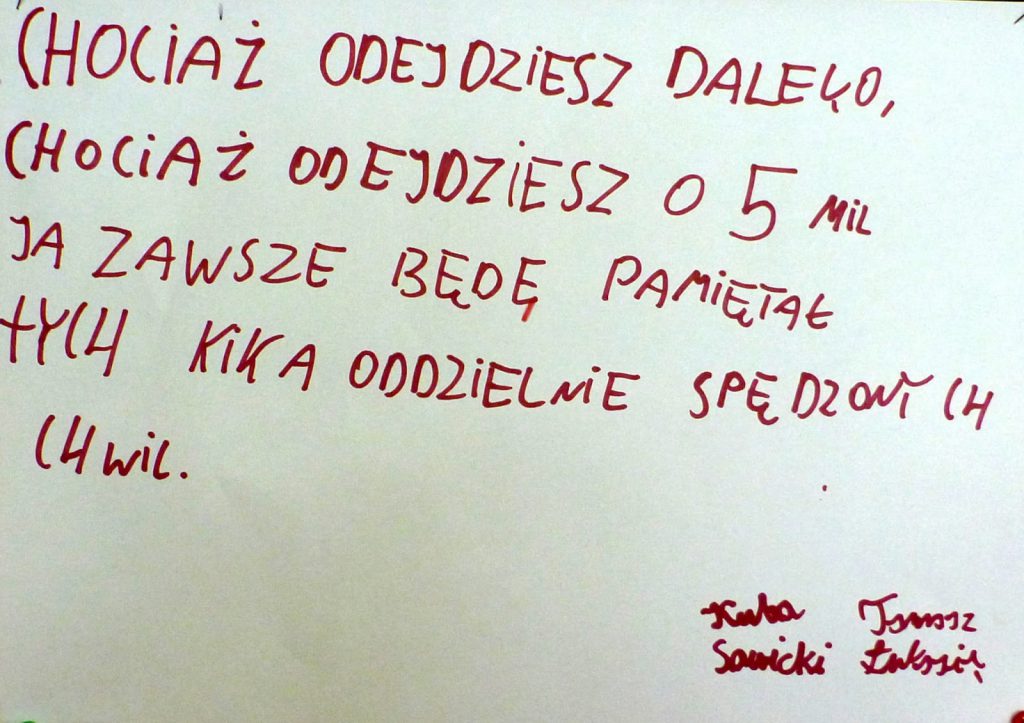 CHOCIAŻ ODEJDZIESZ DALEKO,
CHOCIAŻ ODEJDZIESZ O 5 MIL
JA ZAWSZE BĘDĘ PAMIĘTAŁ
TYCH KIKA ODDZIELNIE SPĘDZONYCH
CHWIL.
Kuba Tomasz
Sawicki